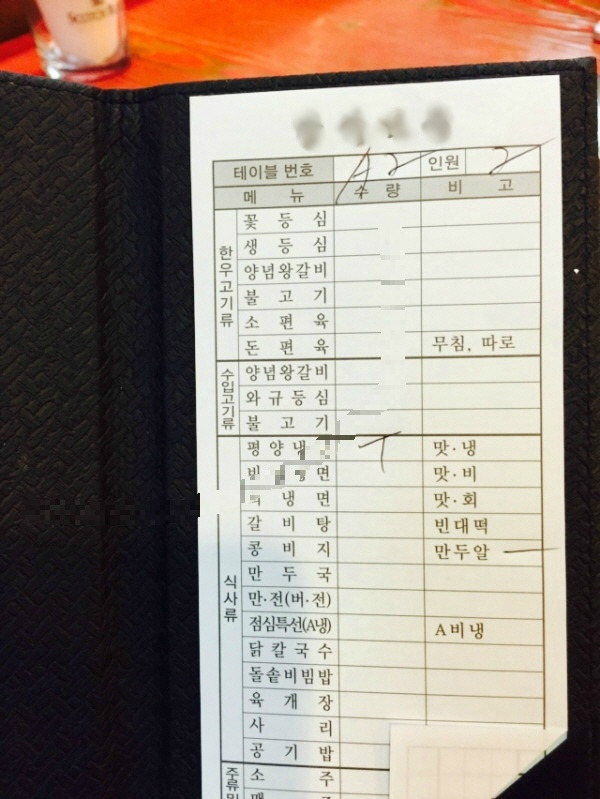 테이블 번호 A2 인원 2
메 뉴 수 량 비 고
한우고기류
꽃 등 심
생 등 심
양념왕갈비
불 고 기
소 편 육
돈 편 육 무침, 따로
수입고기류
양념왕갈비
와 규 등 심
불 고 기
식사류
평 양 냉 맛·냉
면 맛·비
냉 면 맛·회
갈 비 탕 빈대떡
콩 비 지 만두알
만 두 국
만·전(버·전)
점심특선(A냉) A비냉
닭 칼 국 수
돌솥비빔밥
육 개 장
사 리
공 기 밥
주류및
소 주